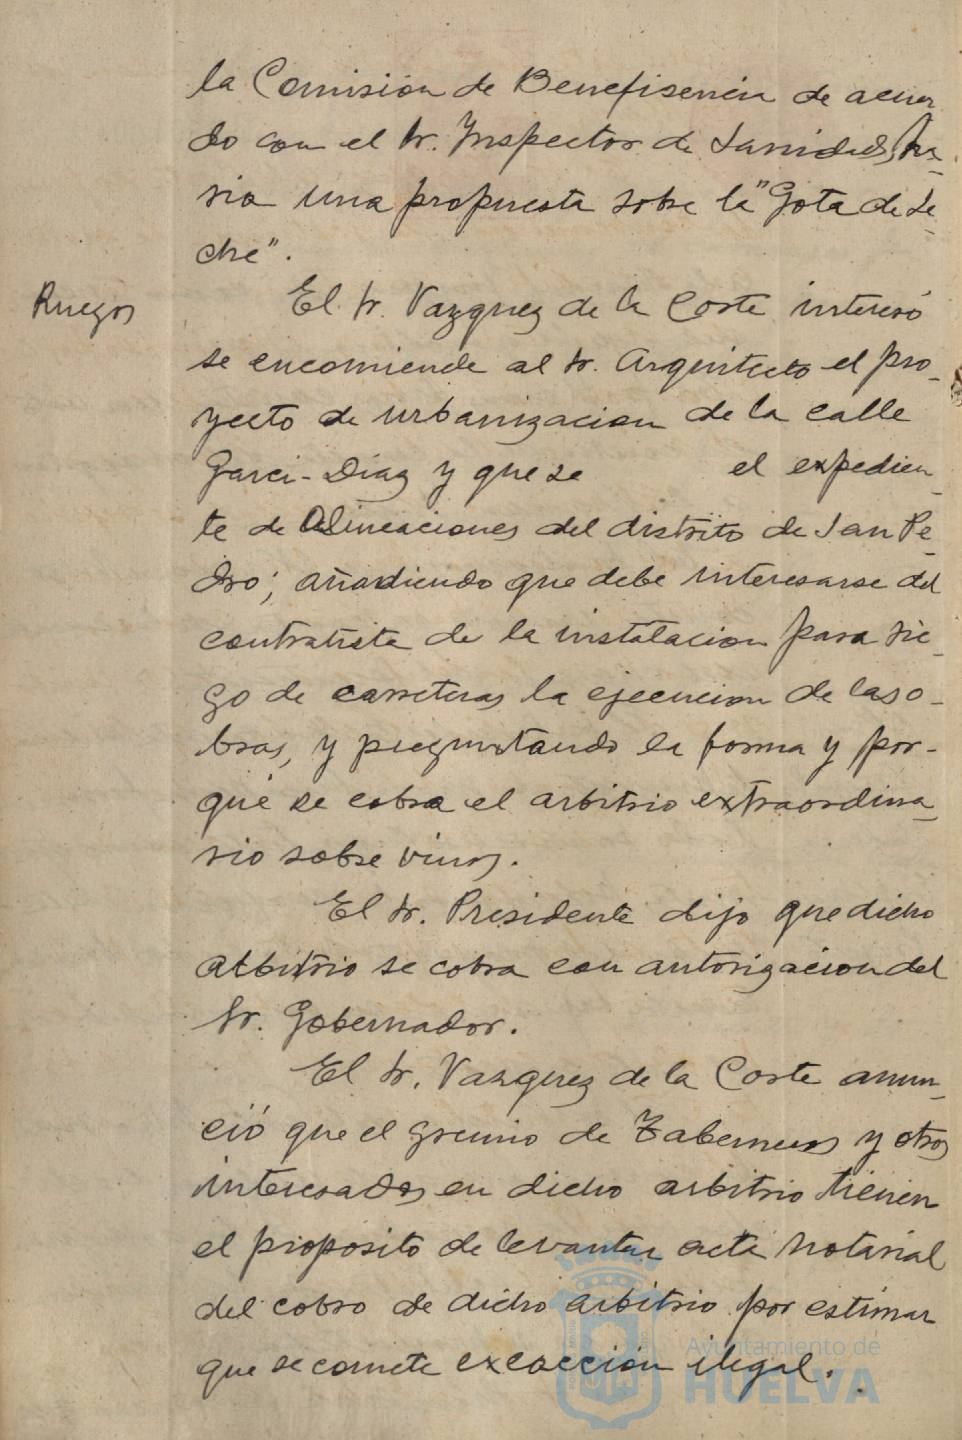 la Comisión de Benefisencia de acuer
do con el Sr. Ynspector de Sanidad, ha-
ria una propuesta sobre la "Gota de Le-
che".
Ruegos
El Sr. Vazquez de la Corte interesó
se encomiende al Sr. Arquitecto el pro-
yecto de urbanizacion de la calle
Garci-Diaz y que se el expedien-
te de Alineaciones del distrito de San Pe-
dro; añadiendo que debe interesarse del
contratista de la instalacion para rie-
go de carreteras la ejecucion de las o-
bras, y preguntando la forma y por-
qué se cobra el arbitrio extraordina-
rio sobre vinos.
El Sr. Presidente dijo que dicho
atbitrio se cobra con autorizacion del
Sr. Gobernador.
El Sr. Vazquez de la Corte anun-
ció que el gremio de Taberneros y otros
interesados en dicho arbitrio tienen
el proposito de levantar acta notarial
del cobro de dicho arbitrio por estimar
que se comete excacción ilegal.
Ayuntamiento de
HUELVA